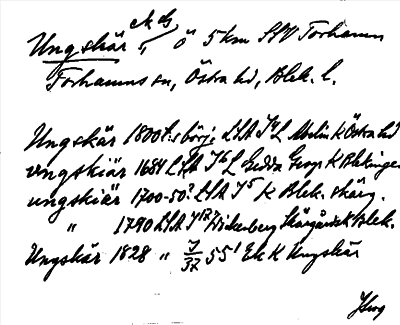 Ungskär, ö 5 km SSV Torhamn
Torhamns sn, Östra hd, Blek. l.
Ungskär 1800t:s börj. LSA K Östra hd
Ungskiär 1684 LSA Geogr K Blekinge
ungskiär 1700-50? LSA K Blek. skärg.
" 1790 LSA Wickenberg Skärgårdsk Blek.
Ungskär 1828 " J/37 55/1 Ek K Ungskär